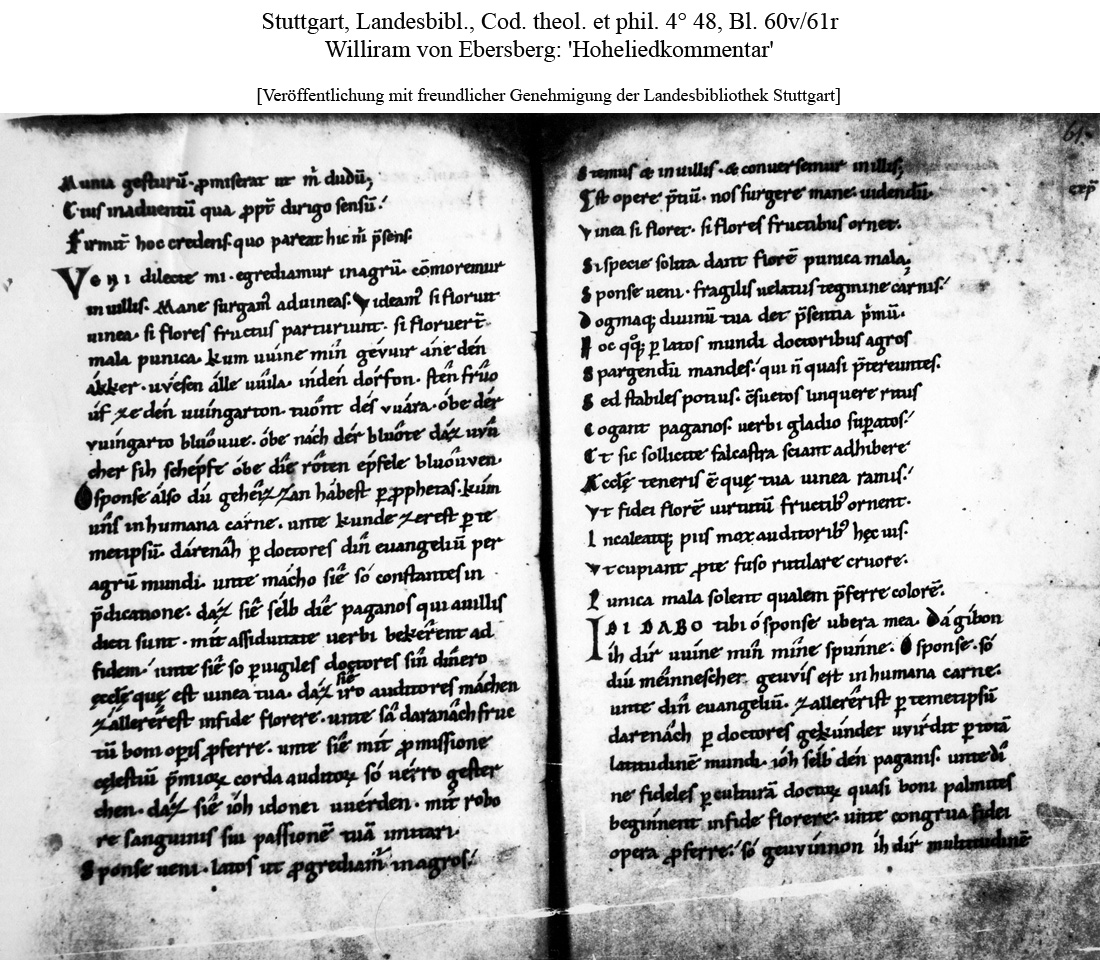 Stuttgart, Landesbibl., Cod. theol. et phil. 4° 48, Bl. 60v/61r
Williram von Ebersberg: 'Hoheliedkommentar'
[Veröffentlichung mit freundlicher Genehmigung der Landesbibliothek Stuttgart]
Munia gesturū. ꝓmiserat ut m̄ dudū;
Cuius inaduentū qua ꝓpt̄ dirigo sensū.
Firmit̄ hoc credens. quo pareat hic m̄ p̄sens.
VENI dilecte mi. egrediamur inagrū. cōmoremur
inuillis. Mane surgam᷒ aduineas. Videam᷒ si floruit
uinea. si flores fructus parturiunt. si floruer̄t
mala punica. kum uuine mîn geuuir áne dén
ákker. uvésen álle uuîla. índen dórfon. stén frûo
ûf ze dén uuîngarton. tuônt dés vuára. óbe dér
vuîngarto bluôuue. óbe nách dér bluôte dáz uvû
cher sih schépfe óbe die rôten épfele bluôuven.
O sponse álso dú gehéizzan hábest ꝑ ꝓphetas. kúm
uńs inhumana carne. unte kunde zerest ꝑ te
metipsū. dárenâh ꝑ doctores dîn euangeliū per
agrū mundi. unte mácho siê só constantes in
p̄dicatione. dáz siê sélb diê paganos qui auillis
dicti sunt. mít assiduitate uerbi bekêrent ad
fidem. unte siê so ꝑuigiles doctores sîn dînero
ęcclę quę est uinea tua. dáz siê iro auditores máchen
zallerêrest infide florere. unte sâ daranâch fruc
tū boni opis ꝓferre. unte siê mít ꝓmissione
cęlestiū p̄mioꝝ corda auditoꝝ só uérro gester
chen. dáz siê ióh idonei uuérden. mít robo
re sanguinis sui passionē tuā imitari.
Sponse ueni. latos ut ꝓgrediam᷒ inagros.
61.
Stemus & inuillis. & conuersemur inillis;
Est opere p̄tiū. nos surgere mane. uidendū.
Vinea si floret. si flores fructibus ornet.
Si specie solita dant florē punica mala;
Sponse ueni. fragilis uelatus tegmine carnis.
Dogmaq; diuinū tua det p̄sentia p̄mū.
Hoc qq; ꝑ latos mundi doctoribus agros
Spargendū mandes. qui n̄ quasi p̄tereuntes.
Sed stabiles potius. ēsuetos linquere ritus
Cogant paganos. uerbi gladio suꝑatos.
Et sic sollicite falcastra sciant adhibere
Aecclę teneris ē quę tua uinea ramis.
Vt fidei florē uirtutū fructib᷒ ornent.
Incaleatq; pius mox auditorib᷒ hęc uis.
Vt cupiant ꝓ te fuso rutilare cruore.
Punica mala solent qualem p̄ferre colorē.
IBI DABO tibi ó sponse ubera mea. Dá gíbon
ih dír uuine mîn mîne spúnne. O sponse. só
díu méinnescher geuuís est inhumana carne.
unte dîn euangeliū. zallerêrist ꝑ temetipsū
darenâch ꝑ doctores gekúndet uvírdit ꝑ totā
latitudinē mundi. ióh sélb dén paganis. unte dî
ne fideles ꝑ culturā doctoꝝ quasi boni palmites
beginnent infide florere. unte congrua fidei
opera ꝓferre. só geuvinnon ih dír multitudinē